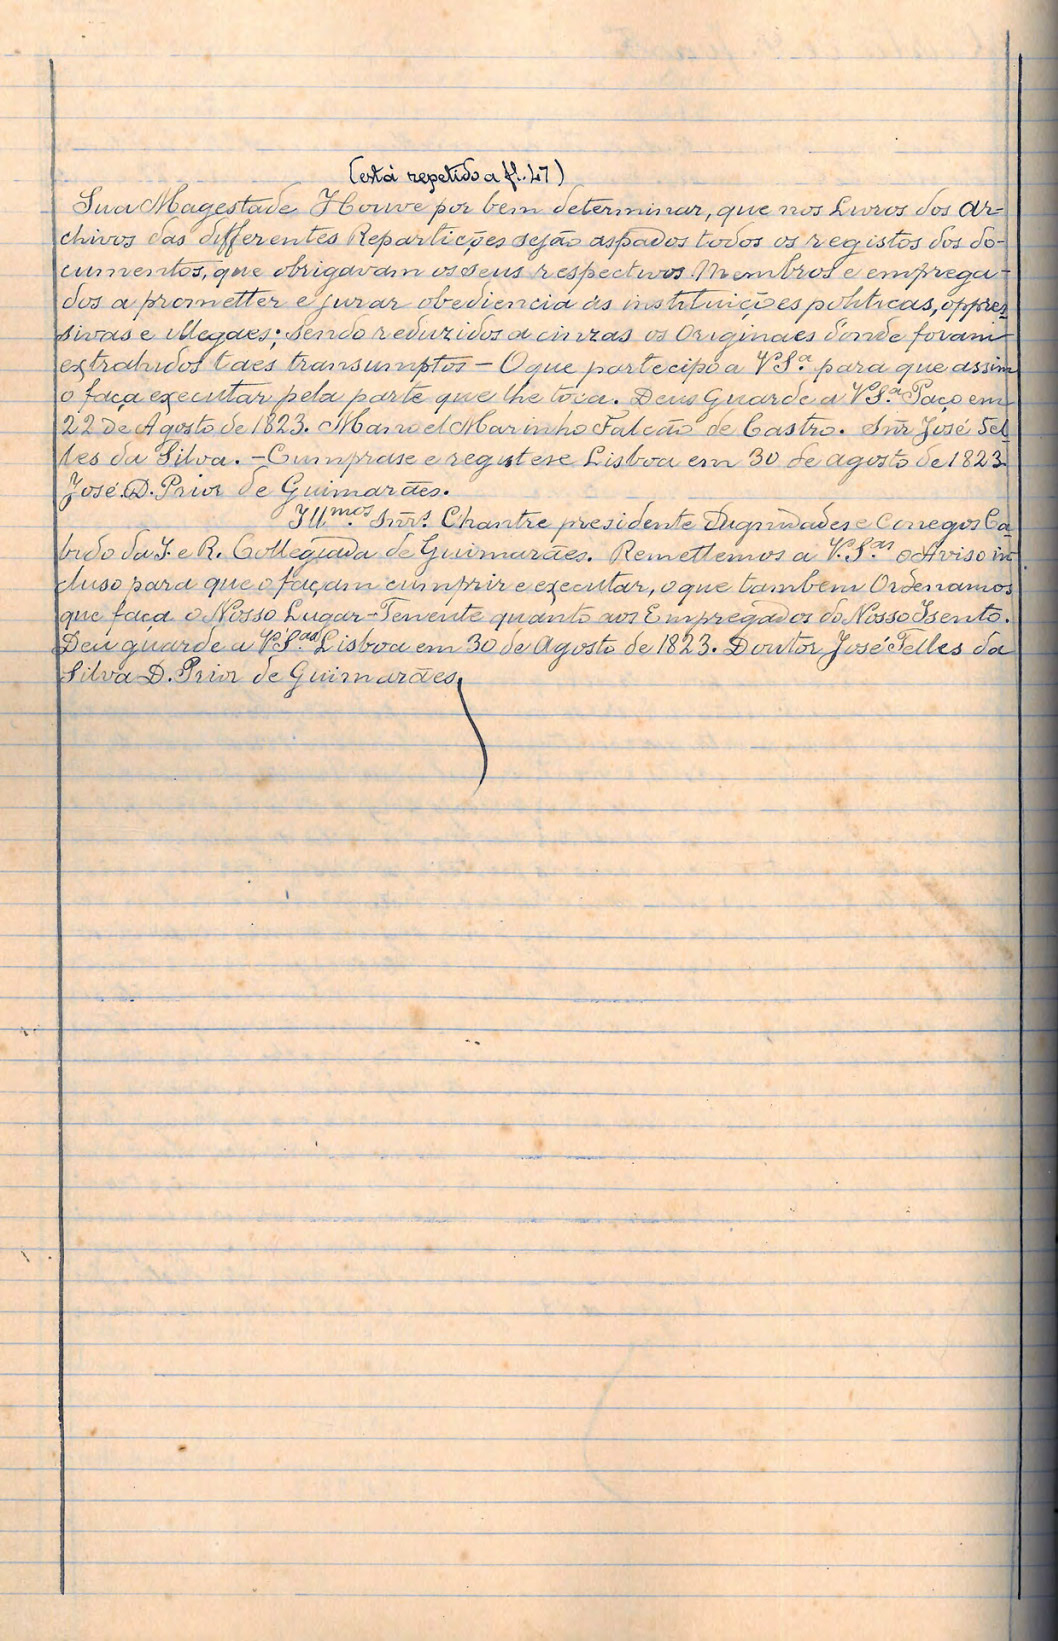 (está repetido a fl. 47)
Sua Magestade Houve por bem determinar, que nos Livros dos Ar-
chivos das differentes Repartições sejão aspados todos os registos dos do-
cumentos, que obrigavam os seus respectivos Membros e emprega-
dos a prometter e jurar obediencia ás instituições politicas, oppres
sivas e illegaes; sendo reduzidos a cinzas os Originaes d'onde foram
extrahidos taes transumptos - O que partecipo a V.S.ª para que assim
o faça executar pela parte que lhe toca. Deus Guarde a V.S.ª Paço em
22 de Agosto de 1823. Manoel Marinho Falcão de Castro. Snr José Tel
les da Silva. - Cumprase e registese Lisboa em 30 de agosto de 1823
José D. Prior de Guimarães.
Ill.mos Snr.s Chantre presidente Dignidades e Conegos Ca
bido da I. e R. Collegiada de Guimarães. Remettemos a V.S.as o Aviso in
cluso para que o façam cumprir e executar, o que tambem Ordenamos
que faça o Nosso Lugar-Tenente quanto aos Empregados do Nosso Isento.
Deu guarde a V.S.as Lisboa em 30 de Agosto de 1823. Doutor José Telles da
Silva D. Prior de Guimarães